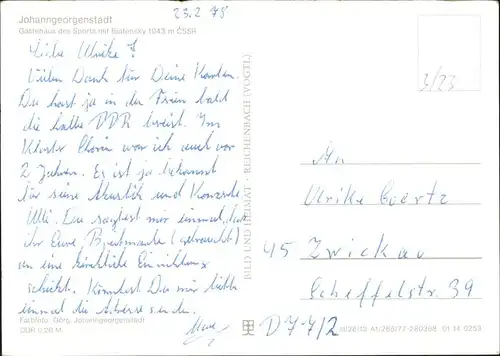 23.2 78
Johanngeorgenstadt
Gästehaus des Sports mit Blatensky 1043 m ČSSR
Liebe Ulrike!
Vielen Dank für Deine Karten.
Du hast ja in den Ferien bald
die halbe DDR bereist. Im
Kloster Chorin war ich auch vor
2 Jahren. Es ist ja bekannt
für seine Akustik und Konzerte
Ulli, Du sagtest mir einmal, daß
ihr Eure Briefmarken (gebraucht)
an eine kirchliche Einrichtung
schickt. Könntest Du mir bitte
einmal die Adresse senden.
Farbfoto: Görg, Johanngeorgenstadt
DDR 0,20 M
BILD UND HEIMAT · REICHENBACH (VOGTL)
3/23
An
Ulrike Goertz
95 Zwickau
Scheffelstr. 39
D 7-7/2
A1/265/77-280398 01 14 0253